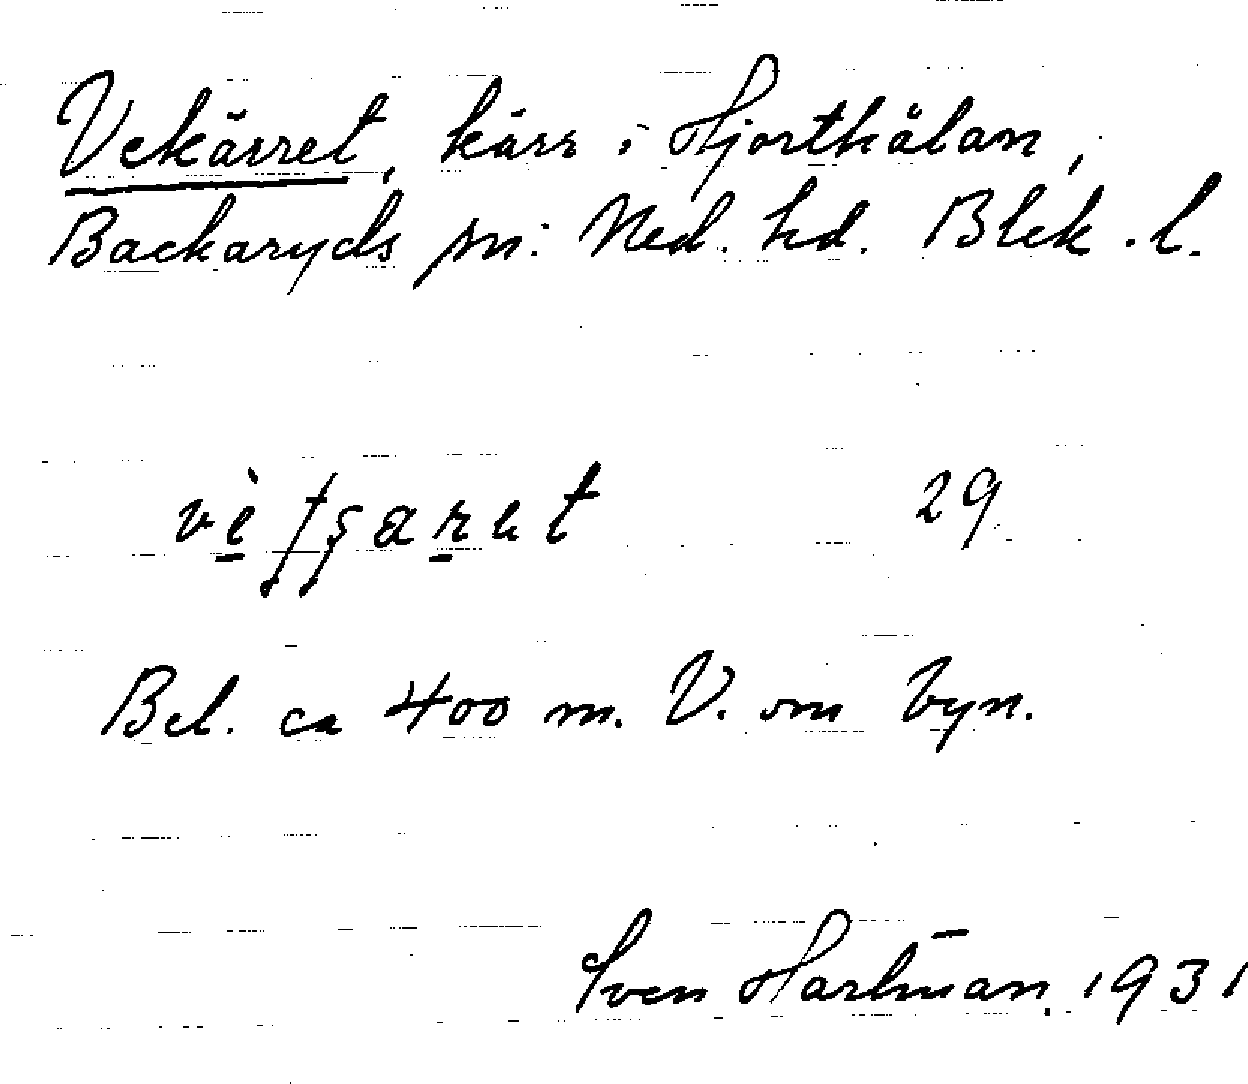 Vekärret, kärr i Hjorthålan,
Backaryds sn. Med. hd. Blek. l.
29
Bel. ca 400 m. V. om byn.
Sven Hartman. 1931